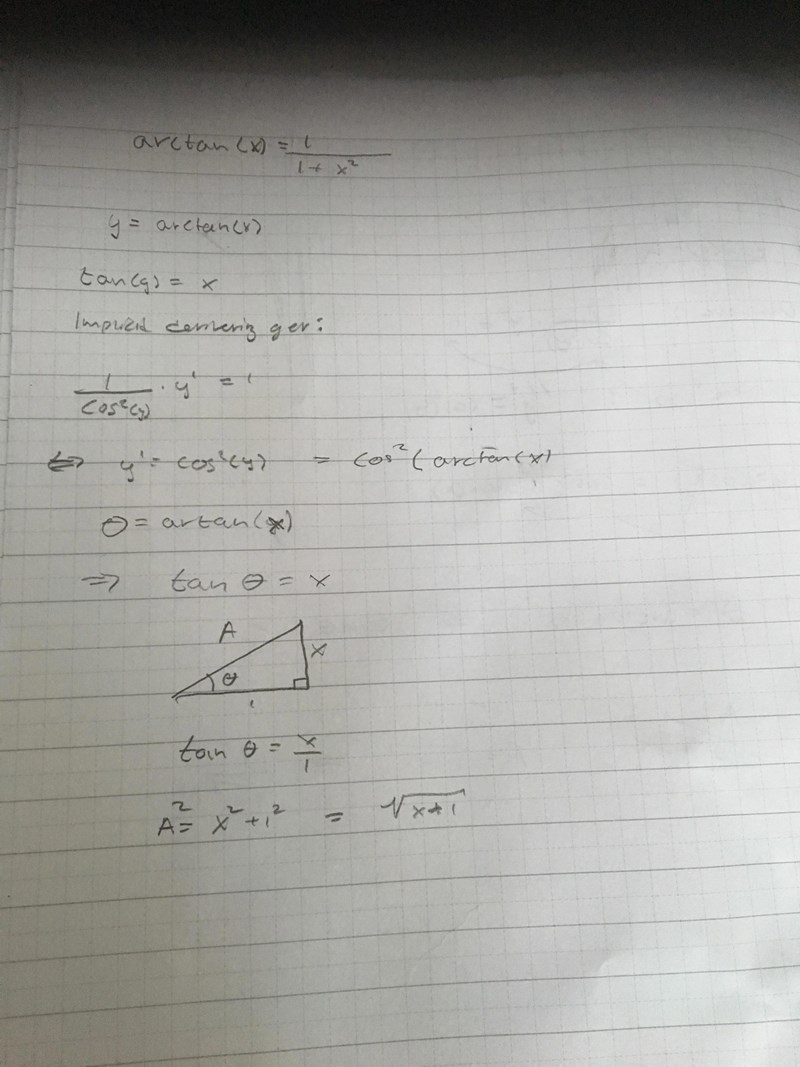 arctan(x) = 1/(1 + x²)
y = arctan(x)
tan(y) = x
Implicid derivering ger:
1/cos²(y) · y' = 1
⇔ y' = cos²(y) = cos²(arctan(x)
θ = artan(x)
⇒ tan θ = x
A
x
θ
1
tan θ = x/1
A² = x² + 1² = √(x+1)